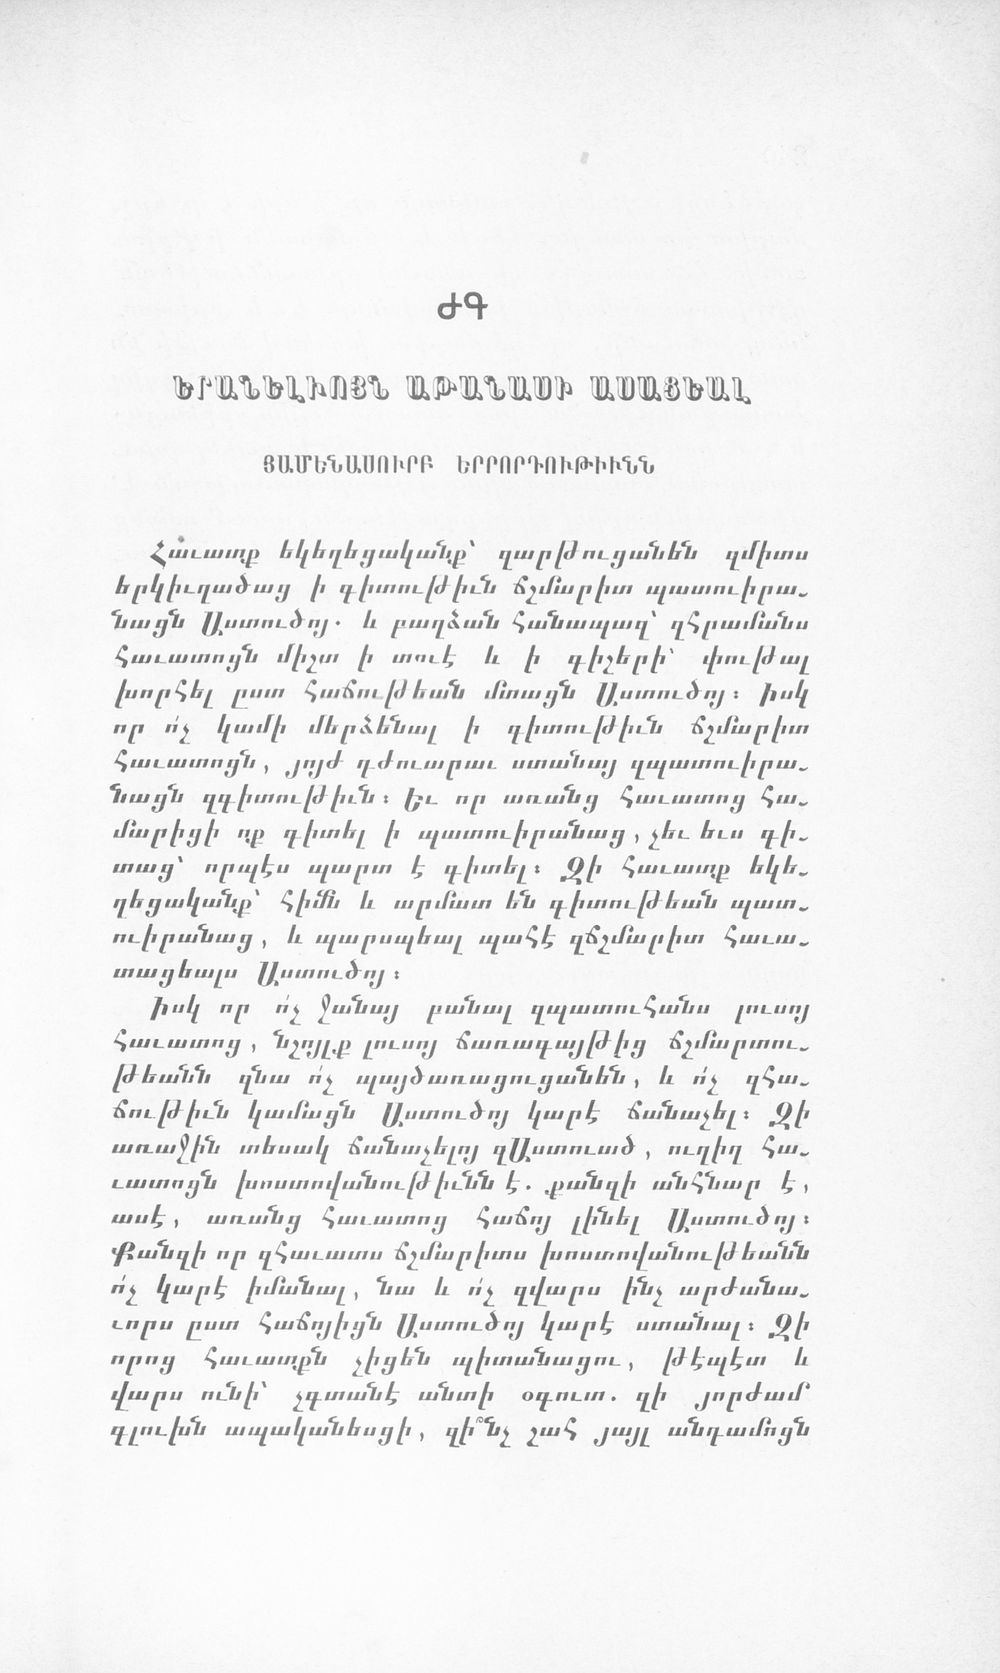 ԺԳ
ԵՐԱՆԵԼՒՈՅՆ ԱԹԱՆԱՍԻ ԱՍԱՑԵԱԼ
ՅԱՄԵՆԱՍՈՒՐԲ ԵՐՐՈՐԴՈՒԹԻՒՆՆ
Հաւատք եկեղեցականք՝ զարթուցանեն զմիտս
երկիւղածաց ի գիտութիւն ճշմարիտ պատուիրա-
նացն Աստուծոյ. և բաղձան հանապազ՝ զհրամանս
հաւատոցն միշտ ի տուէ և ի գիշերի՝ փութալ
խորհել ըստ հաճութեան մտացն Աստուծոյ։ Իսկ
որ ո՛չ կամի մերձենալ ի գիտութիւն ճշմարիտ
հաւատոցն, յոյժ դժուարաւ ստանայ զպատուիրա-
նացն զգիտութիւն։ Եւ որ առանց հաւատոց հա-
մարիցի ոք գիտել ի պատուիրանաց, չեւ եւս գի-
տաց՝ որպէս պարտ է գիտել։ Զի հաւատք եկե-
ղեցականք՝ հիմն և արմատ են գիտութեան պատ-
ուիրանաց, և պարսպեալ պահէ զճշմարիտ հաւա-
տացեալս Աստուծոյ։
Իսկ որ ո՛չ ջանայ բանալ զպատուհանս լուսոյ
հաւատոց, նշոյլք լուսոյ ճառագայթից ճշմարտու-
թեանն զնա ո՛չ պայծառացուցանեն, և ո՛չ զհա-
ճութիւն կամացն Աստուծոյ կարէ ճանաչել։ Զի
առաջին տեսակ ճանաչելոյ զԱստուած, ուղիղ հա-
ւատոցն խոստովանութիւնն է. քանզի անհնար է,
ասէ, առանց հաւատոց հաճոյ լինել Աստուծոյ։
Քանզի որ զհաւատս ճշմարիտս խոստովանութեանն
ո՛չ կարէ իմանալ, նա և ո՛չ զվարս ինչ արժանա-
ւորս ըստ հաճոյիցն Աստուծոյ կարէ ստանալ։ Զի
որոց հաւատքն չիցեն պիտանացու, թէպէտ և
վարս ունի՝ չգտանէ անտի օգուտ. զի յորժամ
գլուխն ապականեսցի, զի՞նչ շահ յայլ անդամոցն